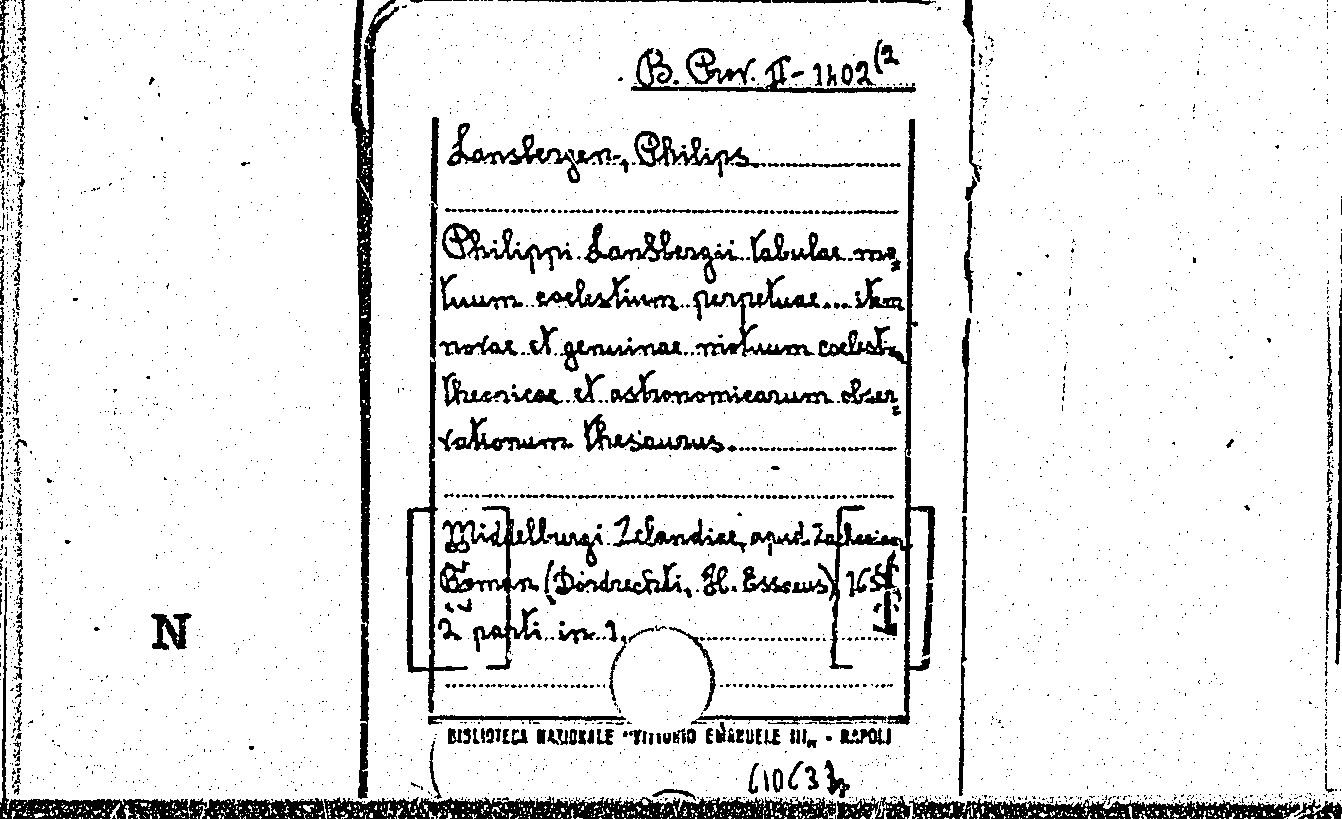 B. Prov. II - 1402 (2
Lansbergen, Philips
Philippi Lansbergii tabulae mo=
tuum coelestium perpetuae... item
novae et genuinae motuum coelest.
theoricae et astronomicarum obser=
vationum thesaurus.
Middelburgi Zelandiae, apud Zachariam
Roman (Dordrechti, H. Essaeus)
2 parti in 1.
N
BIBLIOTECA NAZIONALE "VITTORIO EMANUELE III" - NAPOLI